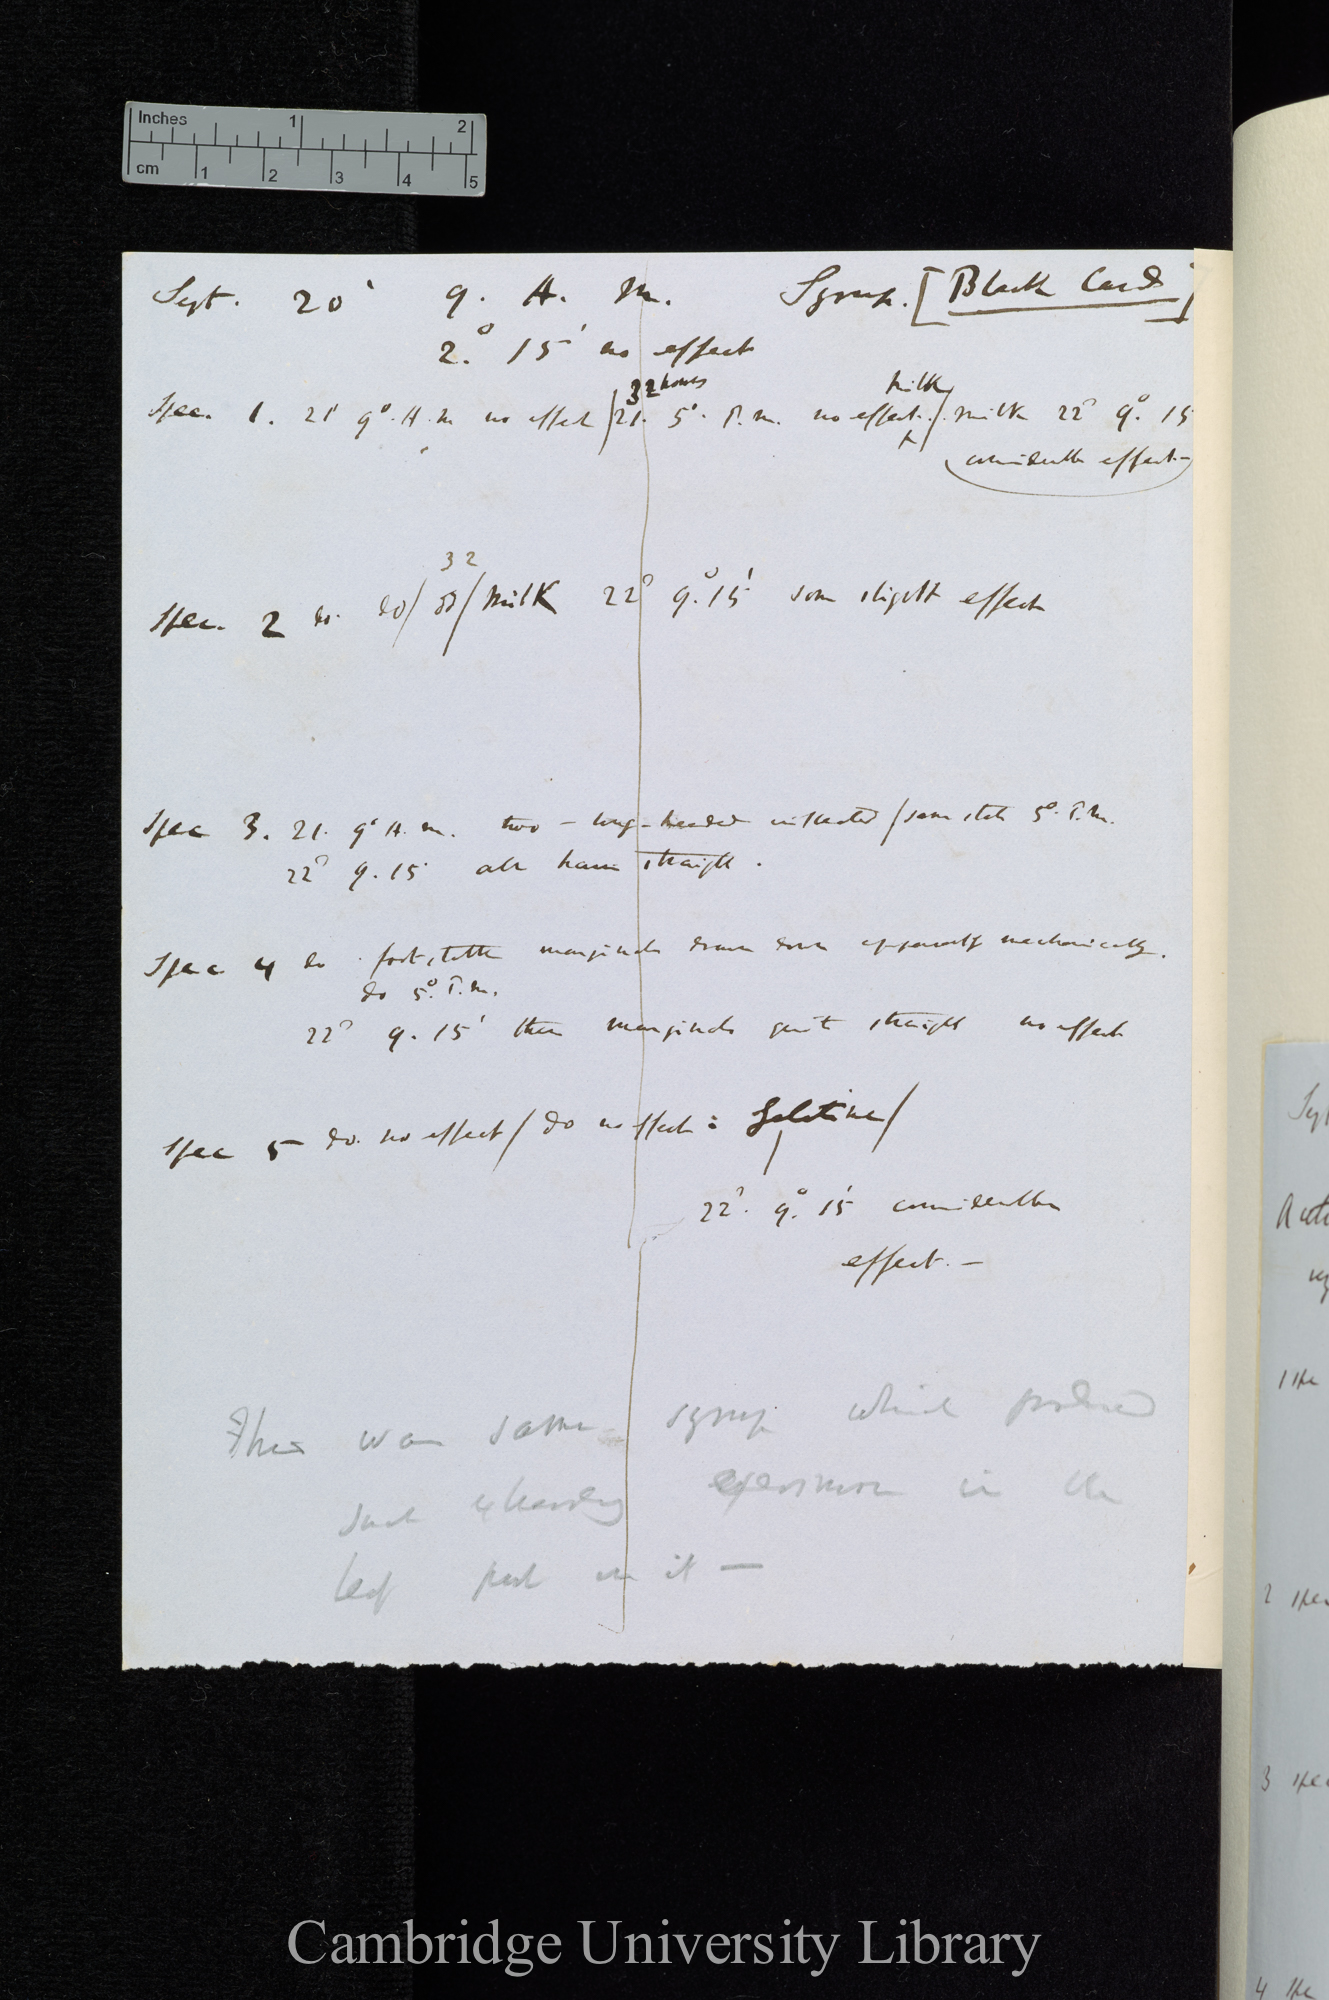 Inches 1 2
cm 1 2 3 4 5
Sept. 20' 9. A. M. Syrup. [Black Card]
2.° 15' no effect
32 hours milk
Spec. 1. 21' 9° A.m no effect / 21. 5°. P.m. no effect. / milk 22° 9.° 15
considerable effect—
32
Spec. 2 do. do / do / milk 22° 9.° 15' some slight effect
Spec 3. 21. 9° A. m. two - long-headed inflected / same state 5° P.M.
22° 9. 15' all hairs straight.
Spec 4 do marginals drawn down apparently mechanically.
do 5°. P.m.
22° 9. 15' these marginals quite straight no effect
Spec 5 do. no effect / do no effect : Gelatine /
22°. 9.° 15' considerable
effect. —
This was same syrup which produced
such in the
leaf put in it —
1 Spe
2 Spec
3 Spec
4 Spe
Cambridge University Library